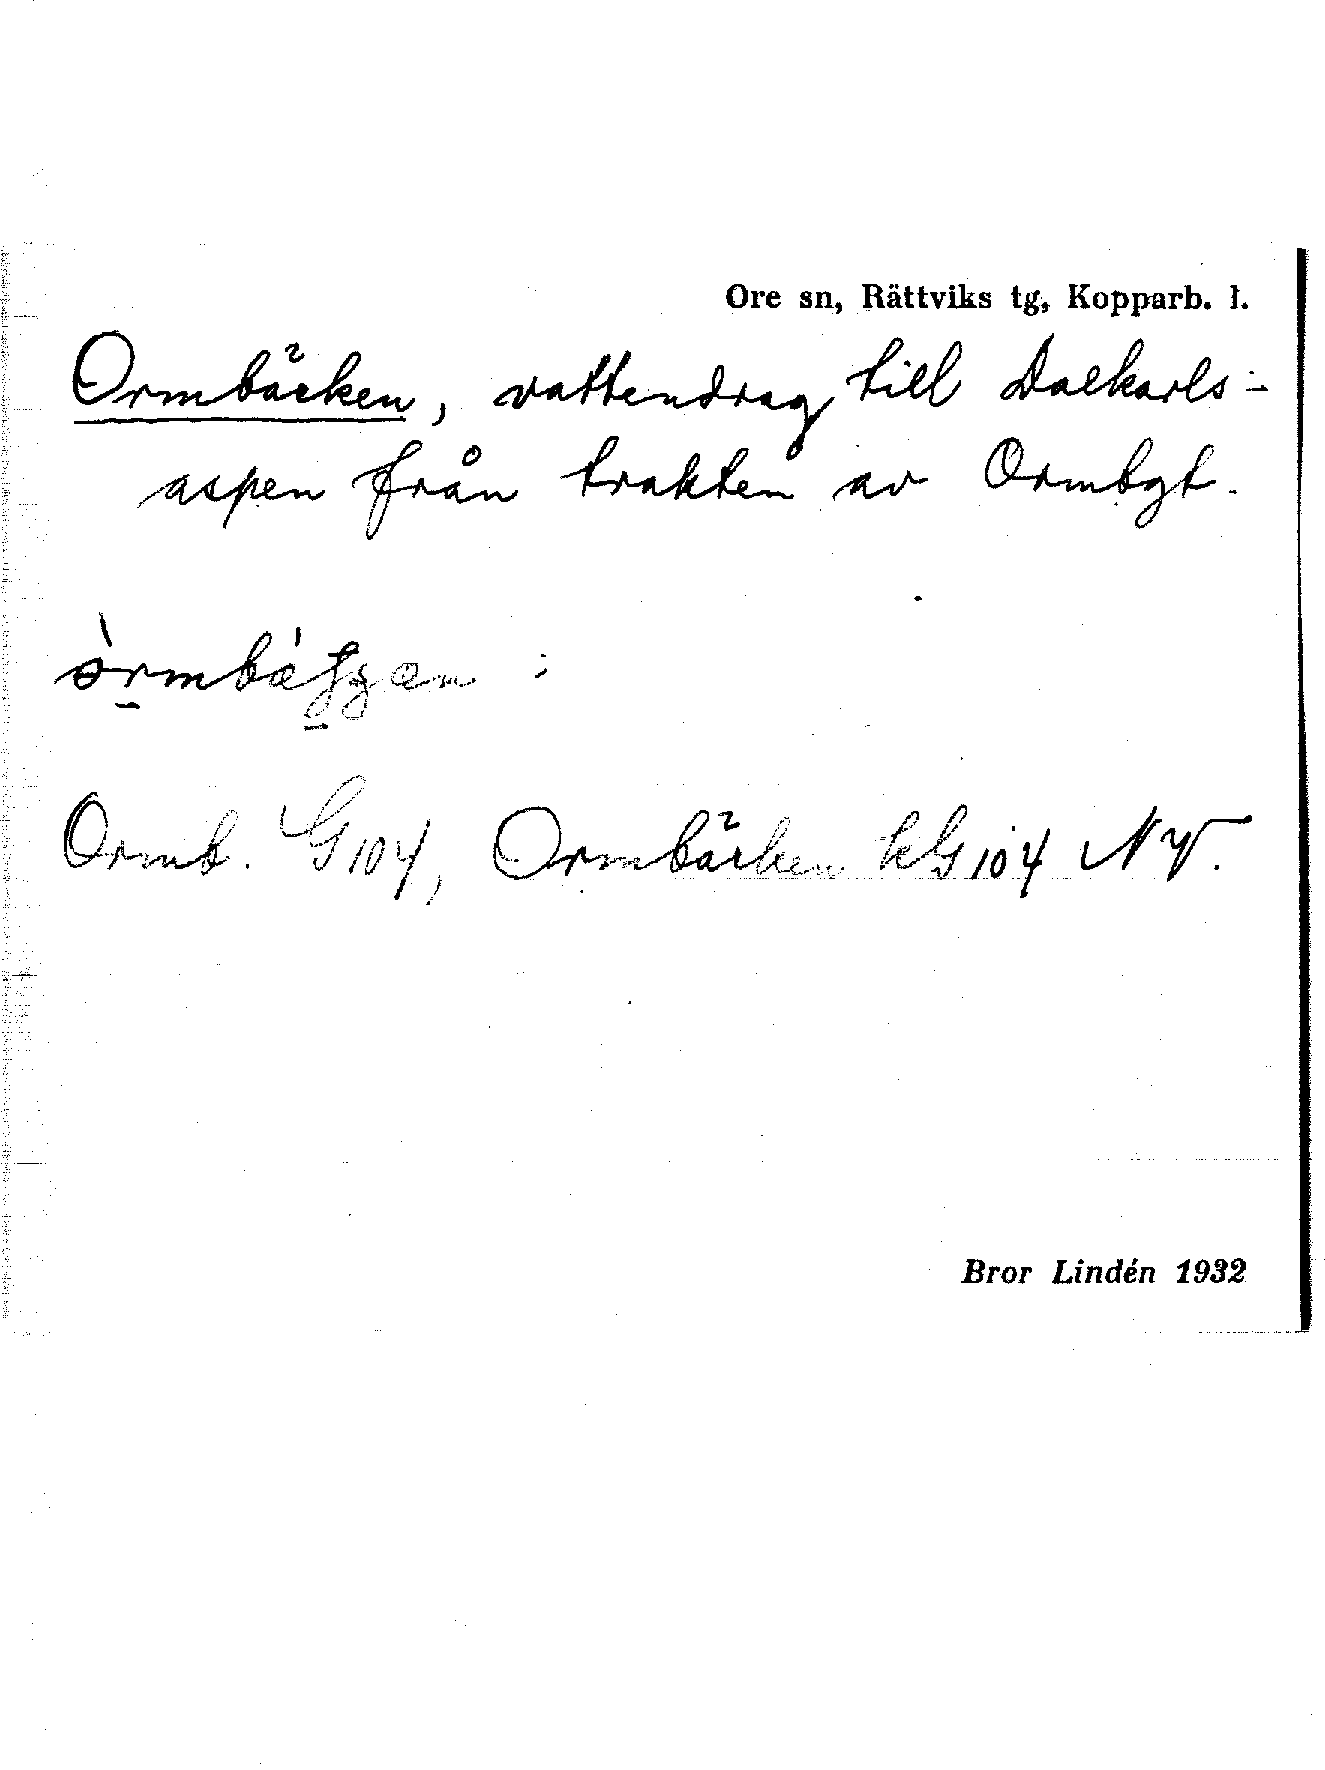 Ore sn, Rättviks tg, Kopparb. l.
Ormbäcken, vattendrag till Dalkarls-
aspen från trakten av Ormbgt.
Ormb. G 104, Ormbäcken kG 104 NV.
Bror Lindén 1932